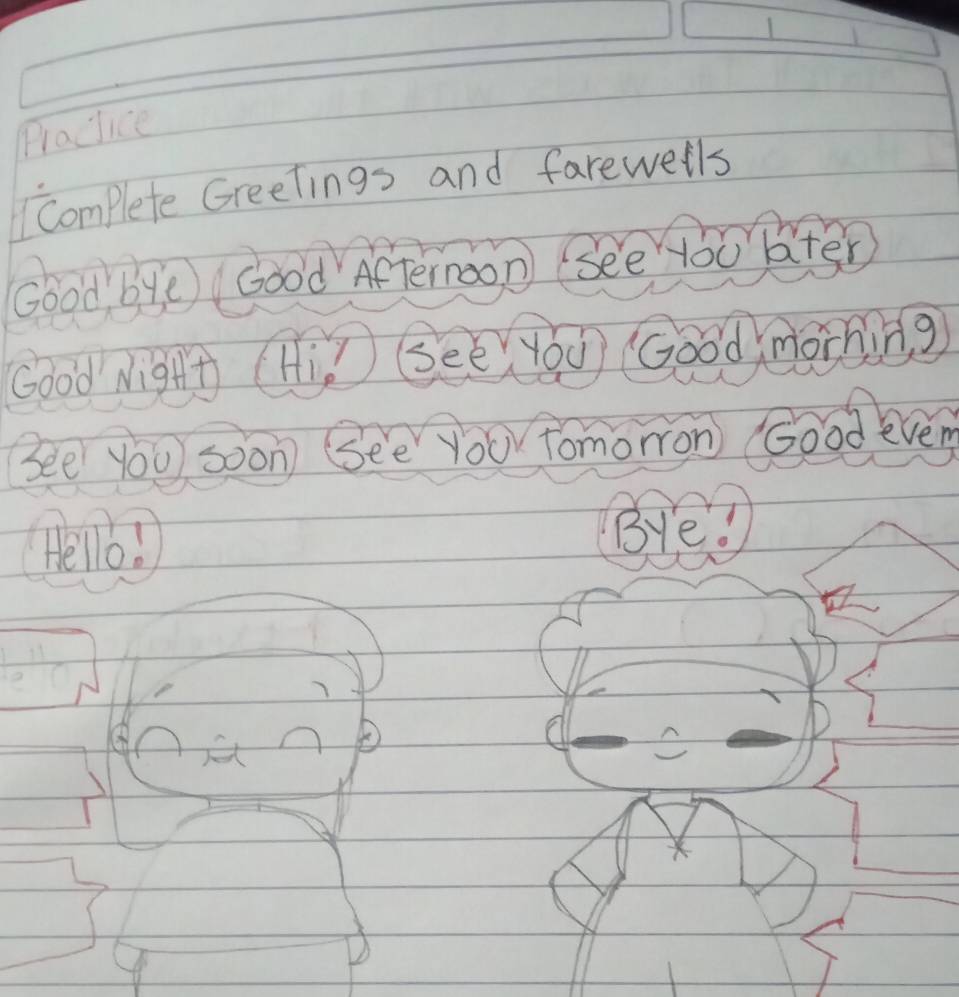 Practice
1 Complete Greetings and farewells
Good bye Good Afternoon See you later
Good Night Hi! See You Good morning
See you soon See you Tomorron Good evem
Hello! Bye!